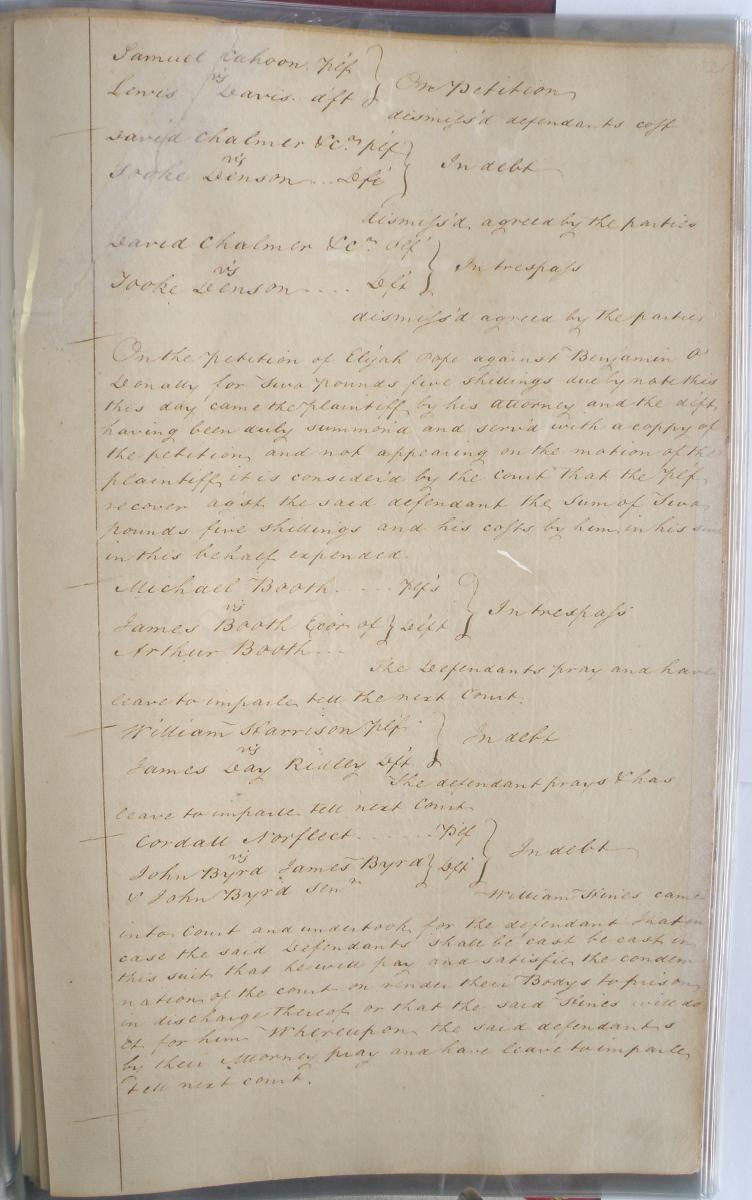 Samuel Cahoon. Plf
vs
Lewis Davis. dft } On Petition
dismiss'd defendants cost
David Chalmer &c.ⁿ plf
vs
Tooke Denson... Dft } In debt
dismiss'd, agreed by the parties
David Chalmer &c.ⁿ Plf
vs
Tooke Denson.... Dft } In trespass
dismiss'd agreed by the parties
On the petition of Elijah Pope against Benjamin O'
Donally for Two pounds five shillings due by note this
this day came the plaintiff by his attorney and the dift,
having been duly summon'd and serv'd with a coppy of
the petition, and not appearing on the motion of the
plaintiff, it is consider'd by the court that the plf
recover agst the said defendant the Sum of Two
pounds five shillings and his costs by him in his
in this behalf expended.
Michael Booth..... Plf's
vs
James Booth Exor of } Deft } In trespass
Arthur Booth...
The Defendants pray and have
leave to imparle tell the next Court.
William Harrison Plf
vs
James Day Ridley Dft } In debt
The defendant prays & has
leave to imparle tell next Court
Cordall Norfleet....... Plf
vs
John Byrd James Byrd } Dft } In debt
& John Byrd Senʳ
William Hines came
into Court and undertook for the defendant that in
case the said Defendants shall be cast be cast in
this suit that he will pay and satisfie the condem
nation of the court or render their Bodys to prison
in discharge thereof or that the said Hines will do
it for him Whereupon the said defendants
by their Attorney pray and have leave to imparle
tell next court.